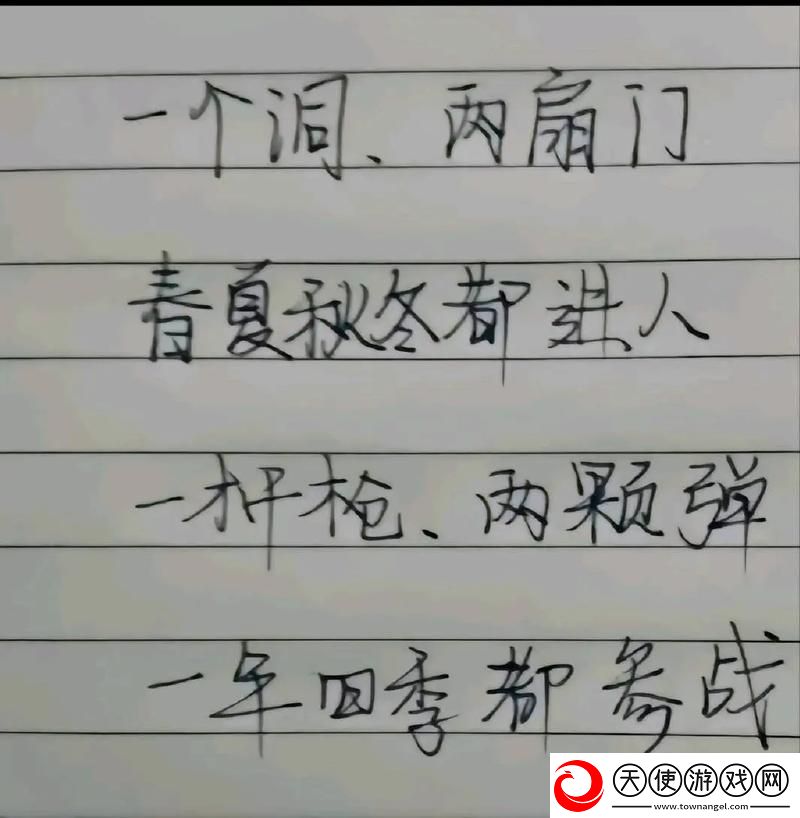 一个洞、两扇门
春夏秋冬都进人
一杆枪、两颗弹
一年四季都参战
天使游戏网
www.townangel.com